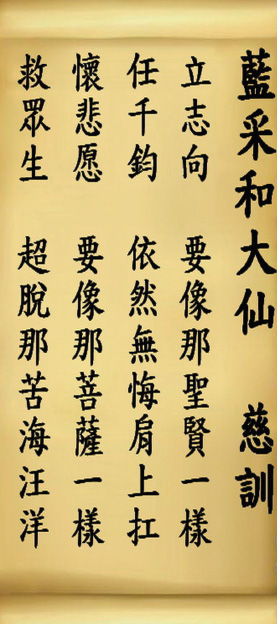 藍采和大仙 慈訓
立志向 要像那聖賢一樣
任千鈞 依然無悔肩上扛
懷悲愿 要像那菩薩一樣
救眾生 超脫那苦海汪洋